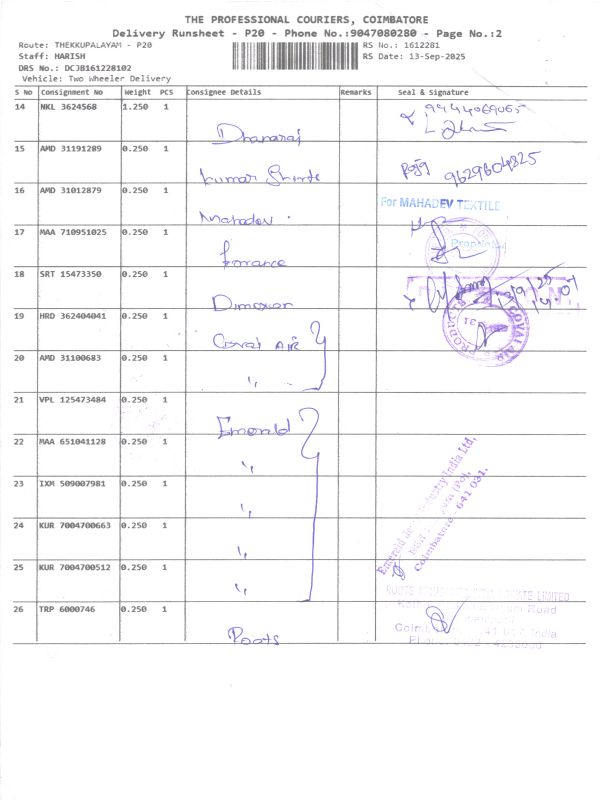 THE PROFESSIONAL COURIERS, COIMBATORE
Delivery Runsheet - P20 - Phone No.:9047080280 - Page No.:2
Route: THEKKUPALAYAM - P20
RS No.: 1612281
Staff: HARISH
RS Date: 13-Sep-2025
DRS No.: DCJB161228102
Vehicle: Two Wheeler Delivery
S NO Consignment No Weight PCS Consignee Details Remarks Seal & signature
14 NKL 3624568 1.250 1 Dhanaraj 9944069065
15 AMD 31191289 0.250 1 Kumar 9629604825
16 AMD 31012879 0.250 1 Mahadev . For MAHADEV TEXTILE
17 MAA 710951025 0.250 1
18 SRT 15473350 0.250 1
19 HRD 362404041 0.250 1 Covai AIR PRODUCTS COVAI AIR
20 AMD 31100683 0.250 1 "
21 VPL 125473484 0.250 1 Emerald
22 MAA 651041128 0.250 1 "
23 IXM 509007981 0.250 1 "
24 KUR 7004700663 0.250 1 "
25 KUR 7004700512 0.250 1 "
Emerald Industry India Ltd,
Coimbatore - 641 031.
26 TRP 6000746 0.250 1 Roots LIMITED
Road
India